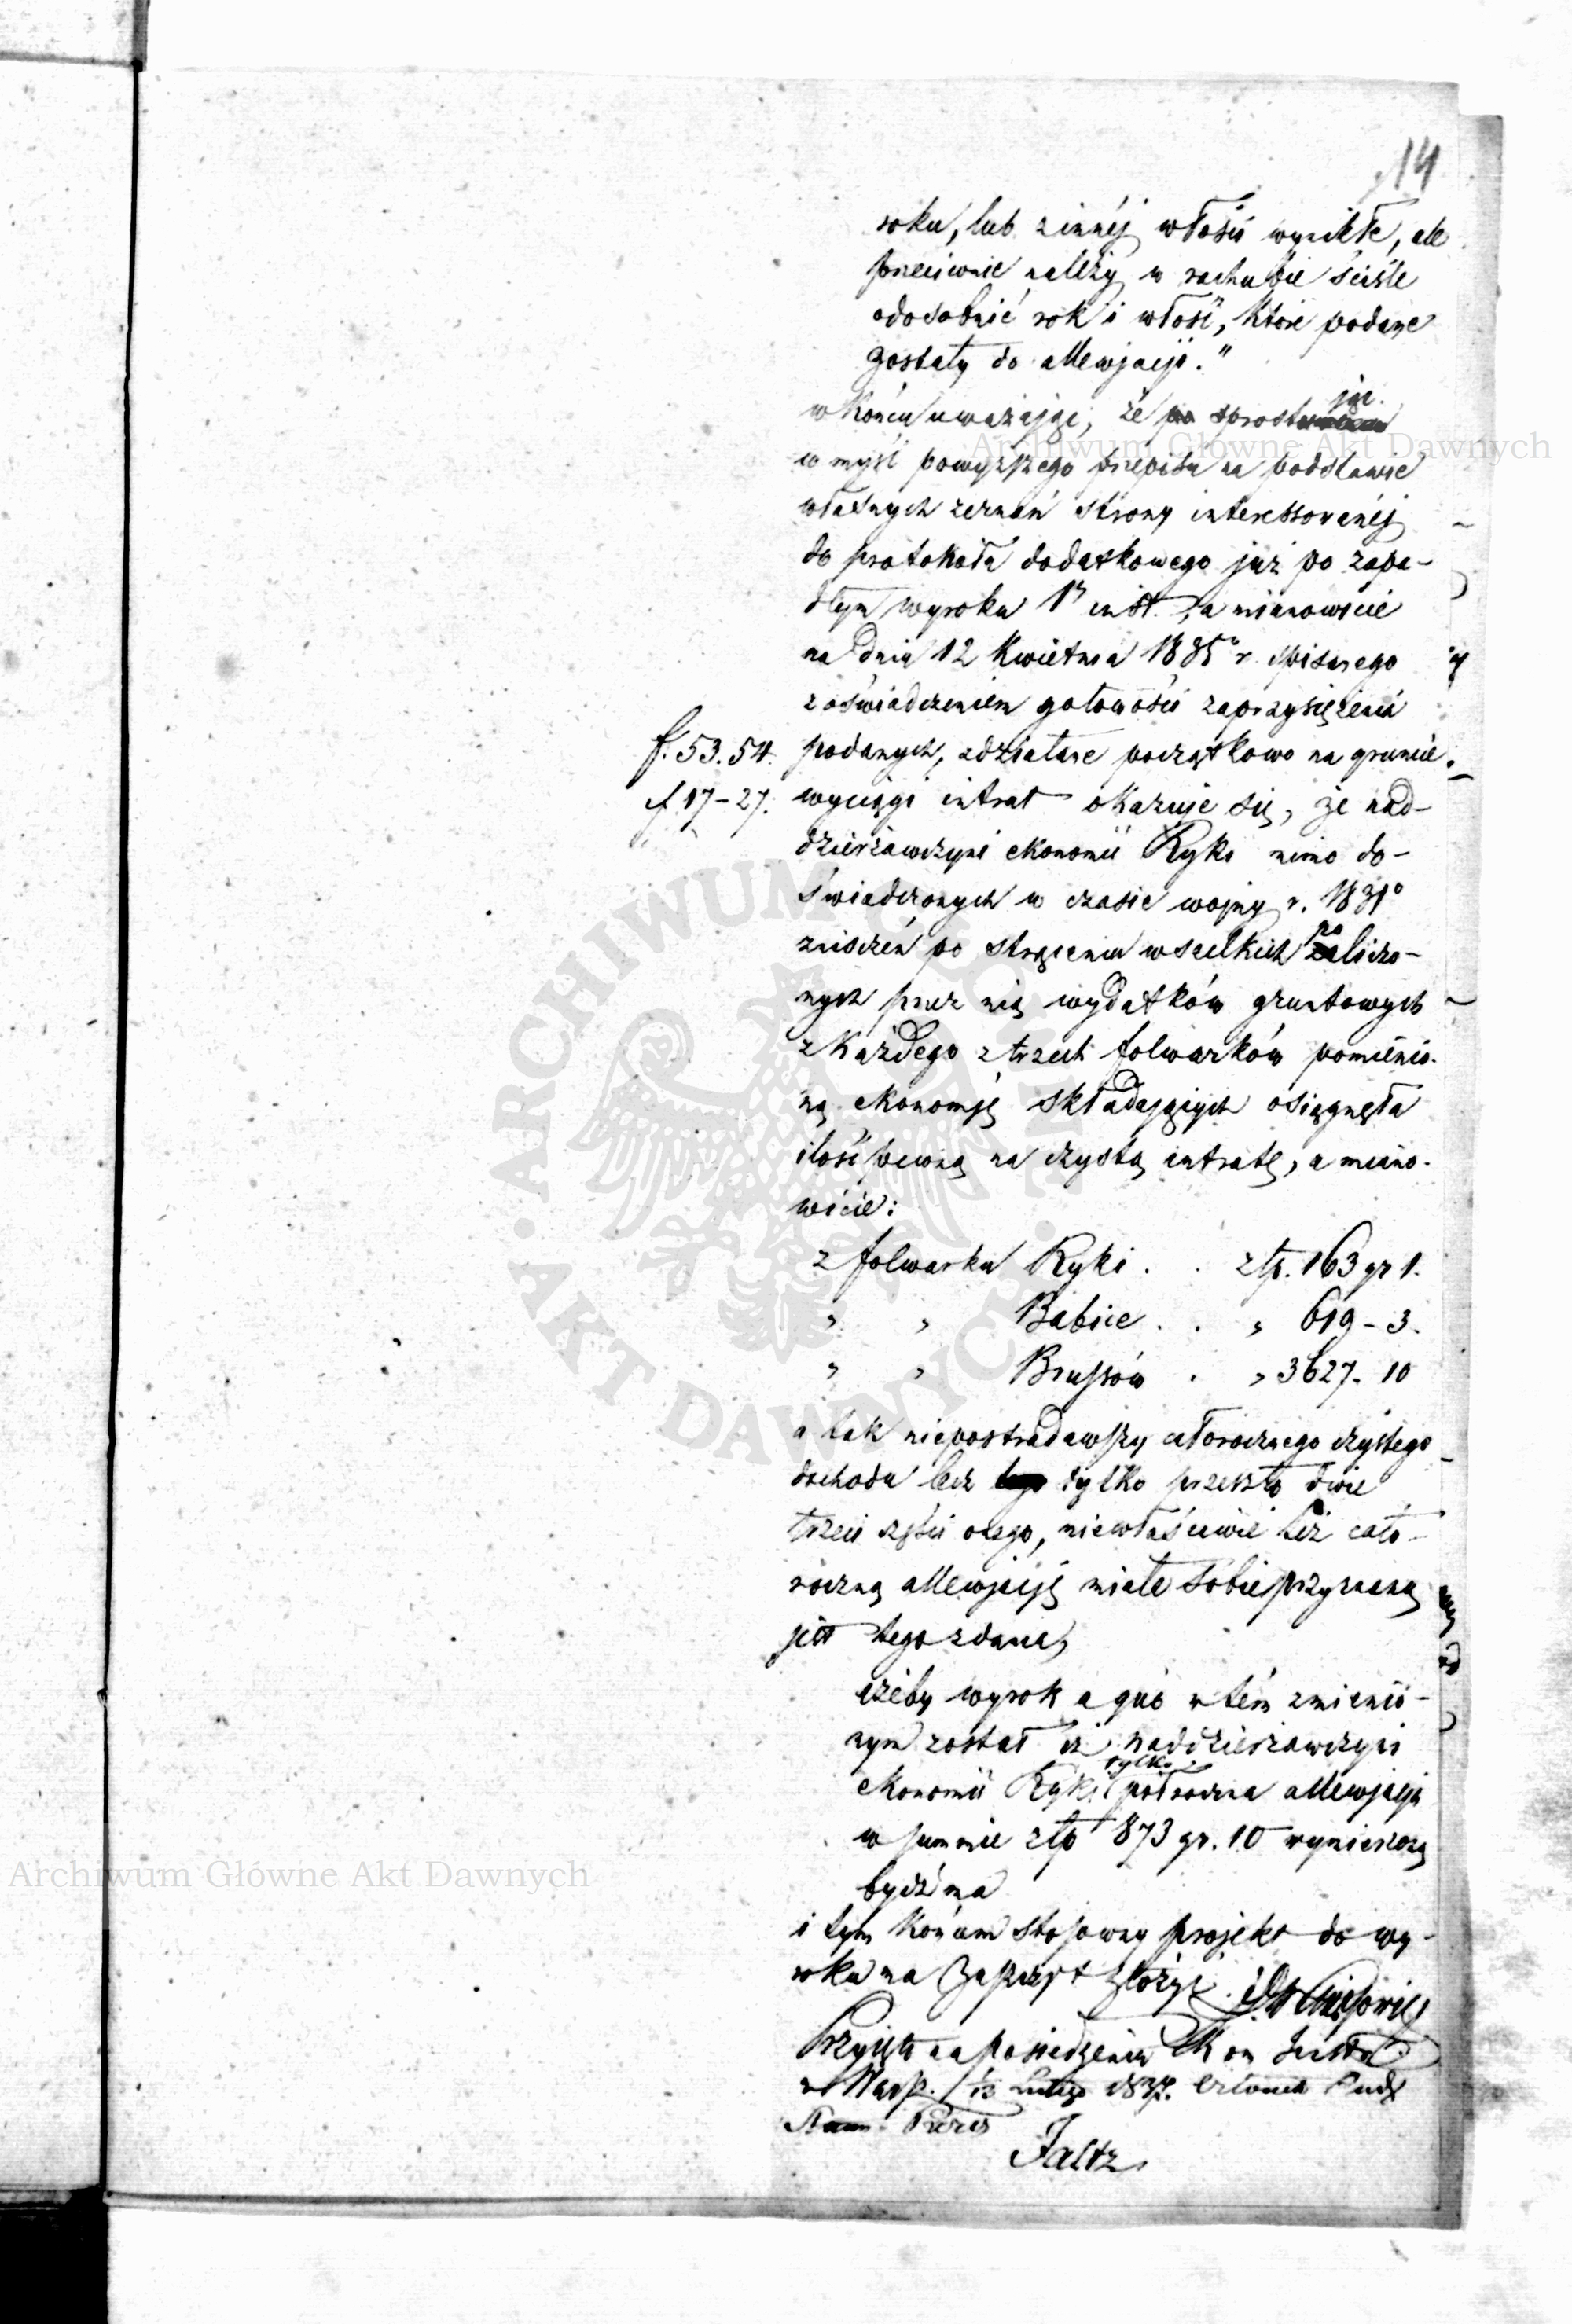 14
roku, lub z innéj włości wynikłe, ale
przeciwnie należy w rachubie ściśle
odosobnić rok i włość, które podane
zostały do allewjacji."
w końcu uważając, że po sprostu jąc
w myśl powyższego przepisu na podstawie
własnych zeznań strony interessowanéj
do protokołu dodatkowego już po zapa-
dłym wyroku 1 inst., a mianowicie
na dniu 12 Kwietnia 1835 r. spisanego
z oświadczeniem gotowości zaprzysiężenia
f. 53. 54. podanych, zdziałane początkowo na gruncie
f. 17-27. wyciągi intrat okazuje się, że nad-
dzierżawczyni ekonomii Ryki mimo do-
świadczonych w czasie wojny r. 1831º
zniszczeń po strąceniu wszelkich policzo-
nych przez nią wydatków gruntowych
z każdego z trzech folwarków pomienio-
ną ekonomję składających osiągnęła
ilość pewną na czystą intratę, a miano-
wicie:
z folwarku Ryki . . złp. 163 gr 1.
" " Babice . . " 619 - 3.
" " Brussów . " 3627 - 10
a tak niepostradawszy całorocznego czystego
dochodu lecz tylko przeszło dwie
trzecie części onego, niewłaściwie też cało-
roczną allewjację miała sobie przyznaną
jest tego zdania,
iżeby wyrok a quo w tém zmienio-
nym został iż naddzierżawczyni
ekonomii Ryki tylko półroczna allewjacja
w summie złp 873 gr. 10 wymierzoną
bydź ma
i tym końcem stosowny projekt do wy-
roku na Zaszczyt złożyć.
Przyjęto na posiedzeniu Kom
w Warsz. 1/13 Lutego 1837. Członek
Prezes
Faltz
Archiwum Główne Akt Dawnych
Archiwum Główne Akt Dawnych
ARCHIWUM GŁÓWNE AKT DAWNYCH